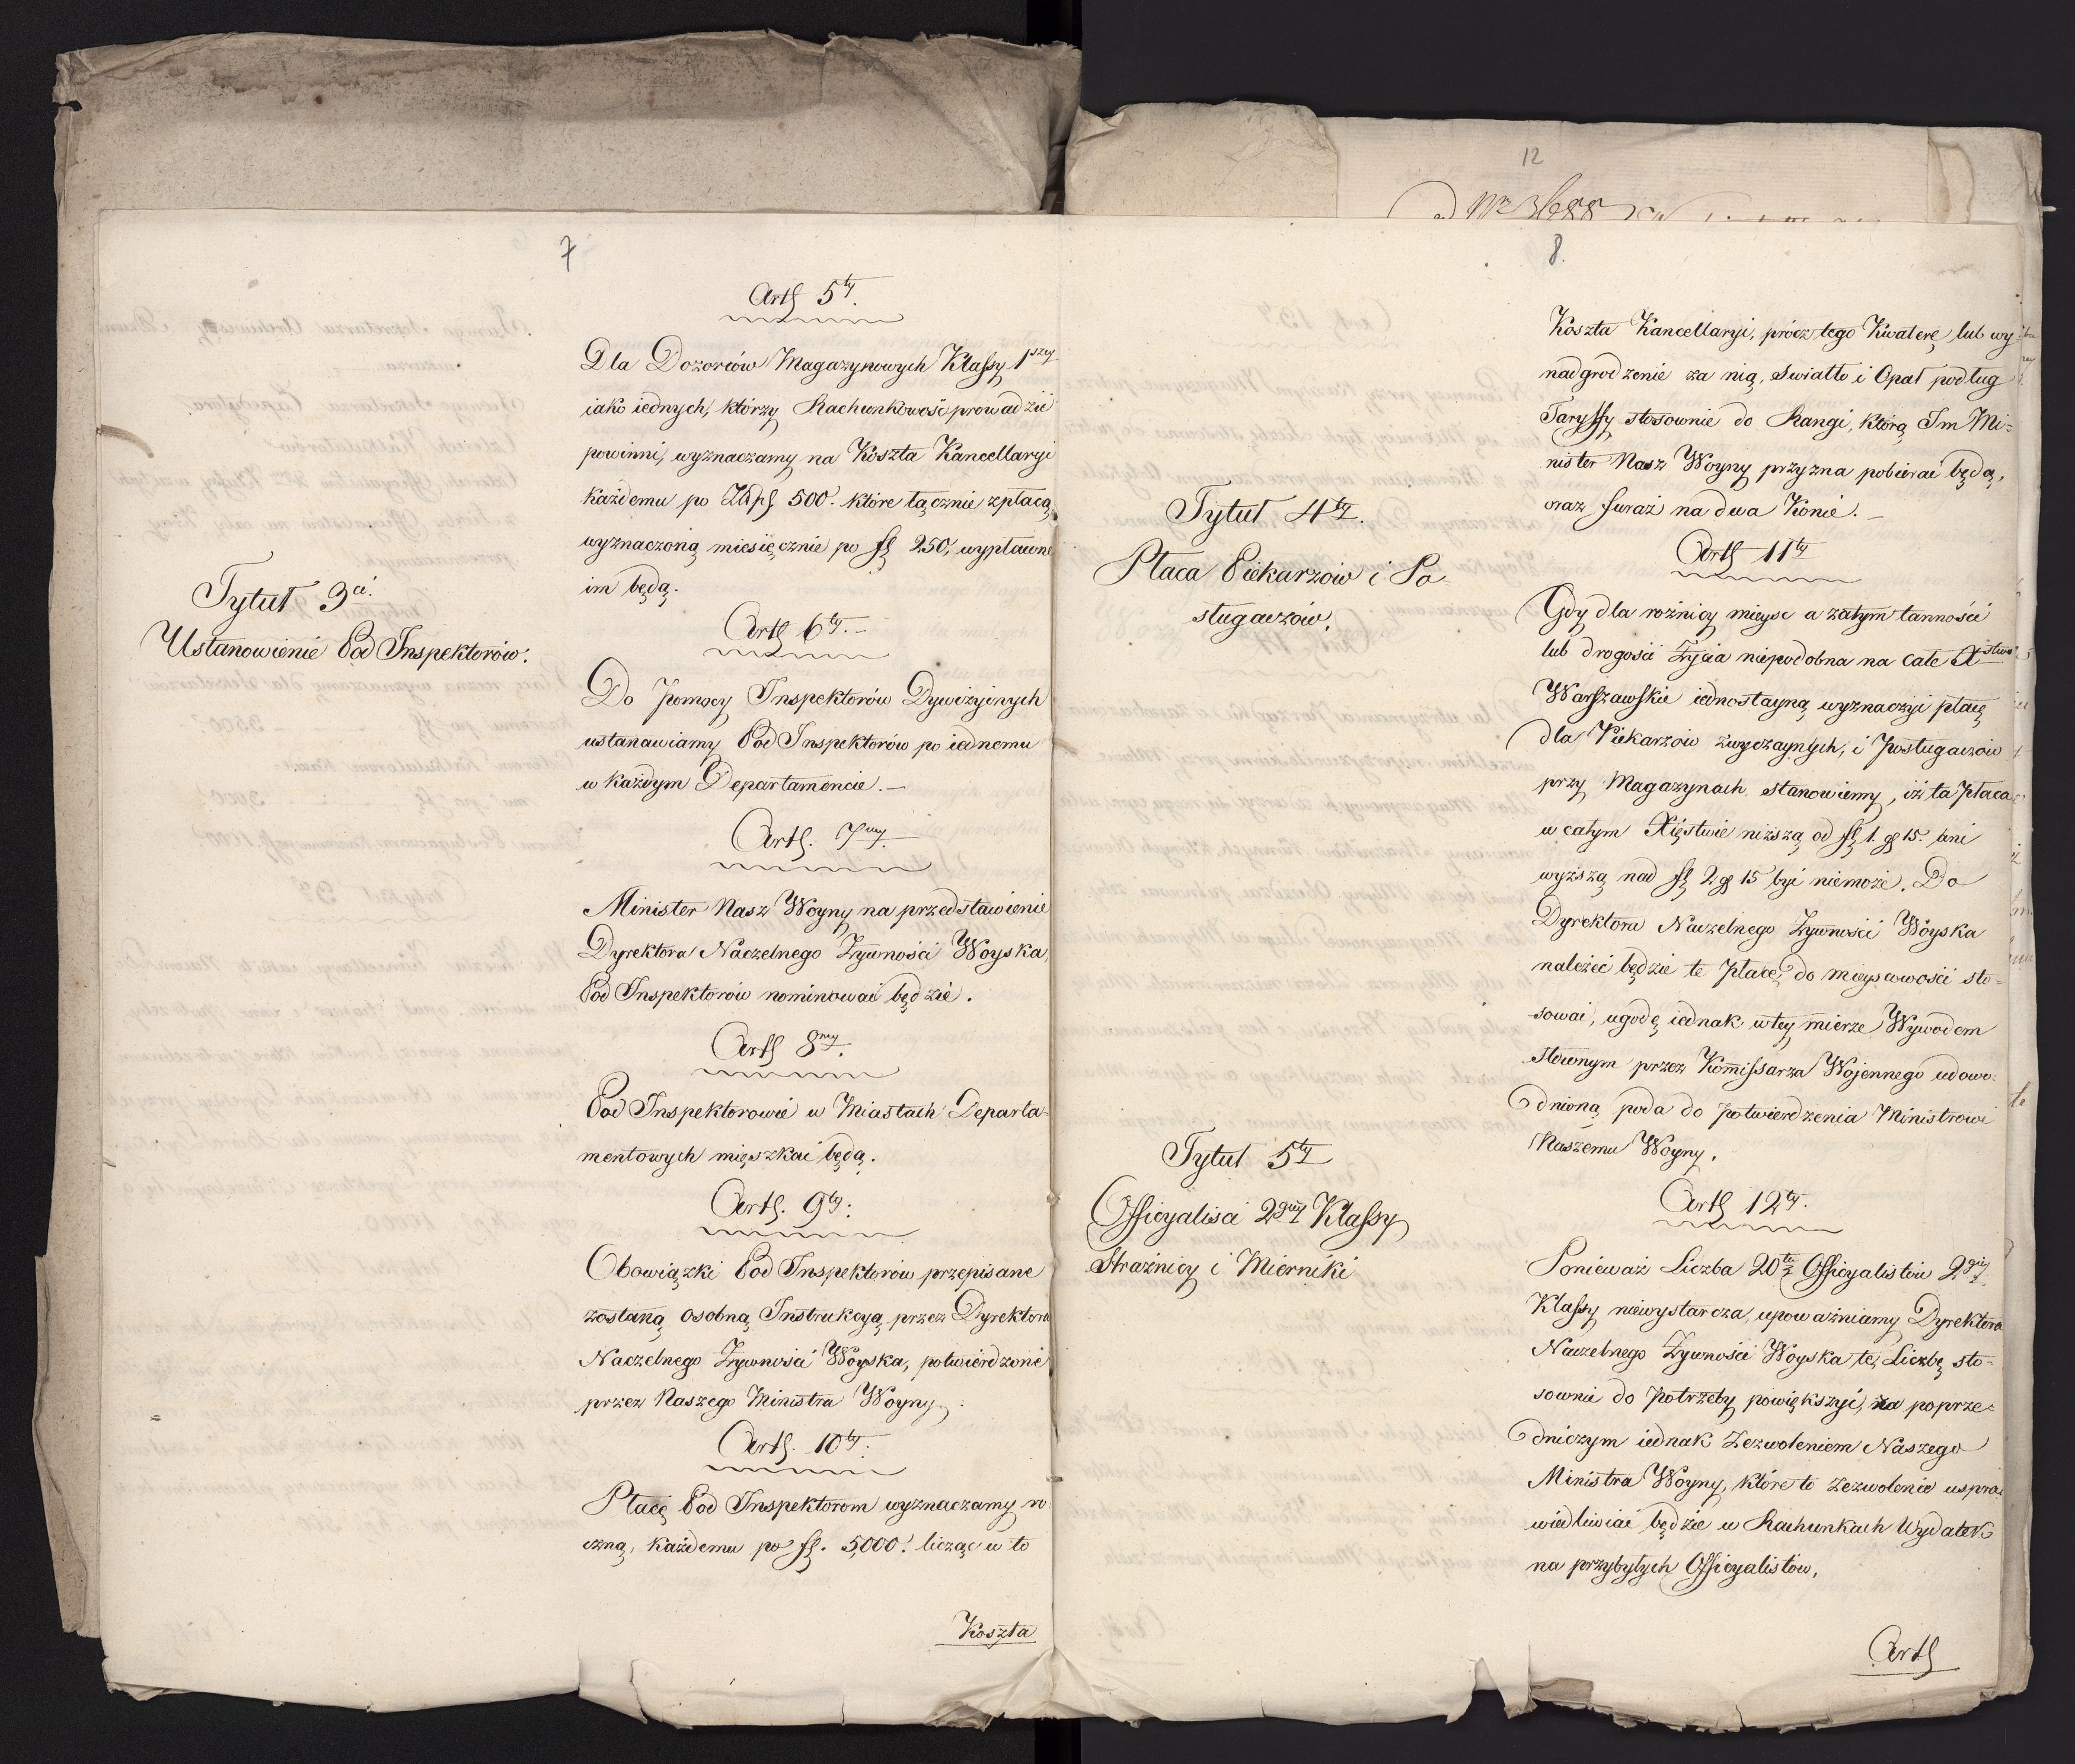 7
Artł 5ty.
Dla Dozorców Magazynowych Klassy 1szey
iako iednych, którzy Rachunkowość prowadzić
powinni, wyznaczamy na Koszta Kancellaryi
każdemu po Złpł 500. które łącznie z płacą
wyznaczoną miesięcznie po fł 250, wypłacone
im będą.
Tytuł 3ci.
Ustanowienie Pod Inspektorów.
Artł 6ty. –
Do pomocy Inspektorów Dywizyinych
ustanawiamy Pod Inspektorów po iednemu
w każdym Departamencie. –
Artł. 7my.
Minister Nasz Woyny na przedstawienie
Dyrektora Naczelnego Żywności Woyska,
Pod Inspektorów nominować będzie.
Artł 8my.
Pod Inspektorowie w Miastach Departa-
mentowych mięszkać będą.
Artł. 9ty:
Obowiązki Pod Inspektorów przepisane
zostaną osobną Instrukcyą przez Dyrektora
Naczelnego Żywności Woyska, potwierdzone
przez Naszego Ministra Woyny.
Artł. 10ty:
Płacę Pod Inspektorom wyznaczamy ro
czną, każdemu po fł. 5,000. licząc w to
Koszta
12
8.
Koszta Kancellaryi, prócz tego Kwaterę lub wy
nadgrodzenie za nią, Swiatło i Opał podług
Taryffy stosownie do Rangi, którą Im Mi=
nister Nasz Woyny przyzna pobierać będą,
oraz furaż na dwa Konie. –
Tytuł 4ty.
Płaca Piekarzów i Po
sługaczów.
Artł 11ty
Gdy dla rożnicy mieysc a zatym tanności
lub drogości Życia niepodobna na całe Xstwo
Warszawskie iednostayną wyznaczyć płacę
dla Piekarzow zwyczaynych, i Posługaczow
przy Magazynach, stanowiemy, iż ta płaca
w całym Xięstwie niższą od fł 1. gł 15. ani
wyższą nad fł 2 gł 15 być niemoże. Do
Dyrektora Naczelnego Żywności Woyska
należeć będzie te Płacę do mieyscowości sto=
sować, ugodę iednak w tey mierze Wywodem
słownym przez Kommissarza Wojennego udowo=
dnioną poda do potwierdzenia Ministrowi
Naszemu Woyny.
Tytuł 5ty
Officyalisci 2giey Klassy
Strażnicy i Mierniki
Artł 12ty.
Ponieważ Liczba 20tu Officyalistów 2giey
Klassy niewystarcza, upoważniamy Dyrektora
Naczelnego Żywności Woyska tę Liczbę sto=
sownie do potrzeby powiększyć, za poprze=
dniczym iednak Zezwoleniem Naszego
Ministra Woyny, które to zezwolenie uspra
wiedliwiać będzie w Rachunkach Wydatek
na przybyłych Officyalistów,
Artł